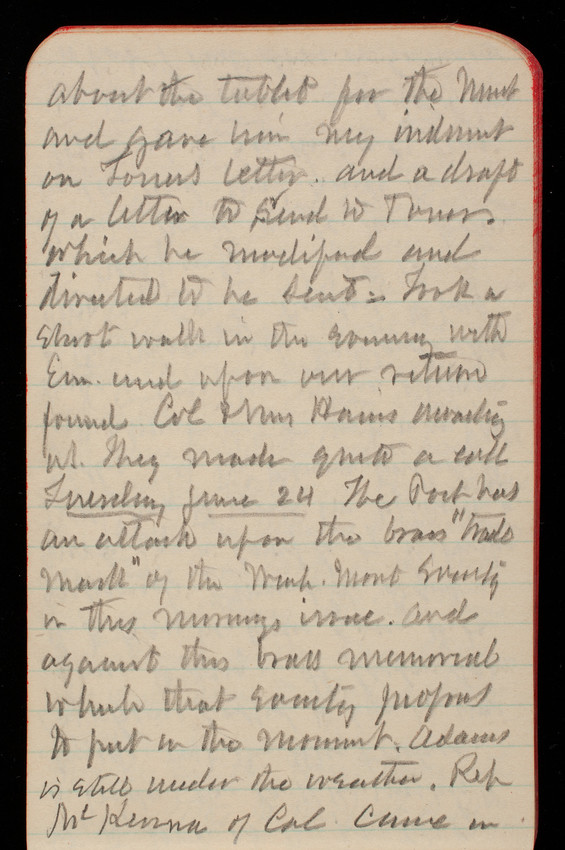 about the tablet for the Mont
and gave him my indmnt
on Toners letter. and a draft
of a letter to send to Toner.
which he modified and
directed to be sent = Took a
short walk in the evening with
Em. and upon our return
found Col & Mrs Hains awaiting
us. They made quite a call
Tuesday June 24 The Post has
an attack upon the brass "trade
mark" of the Wash. Mont Society
in this mornings issue. and
against this brass memorial
which that society propos
to put in the monmnt. Adams
is still under the weather. Rep
McKenna of Cal. came in